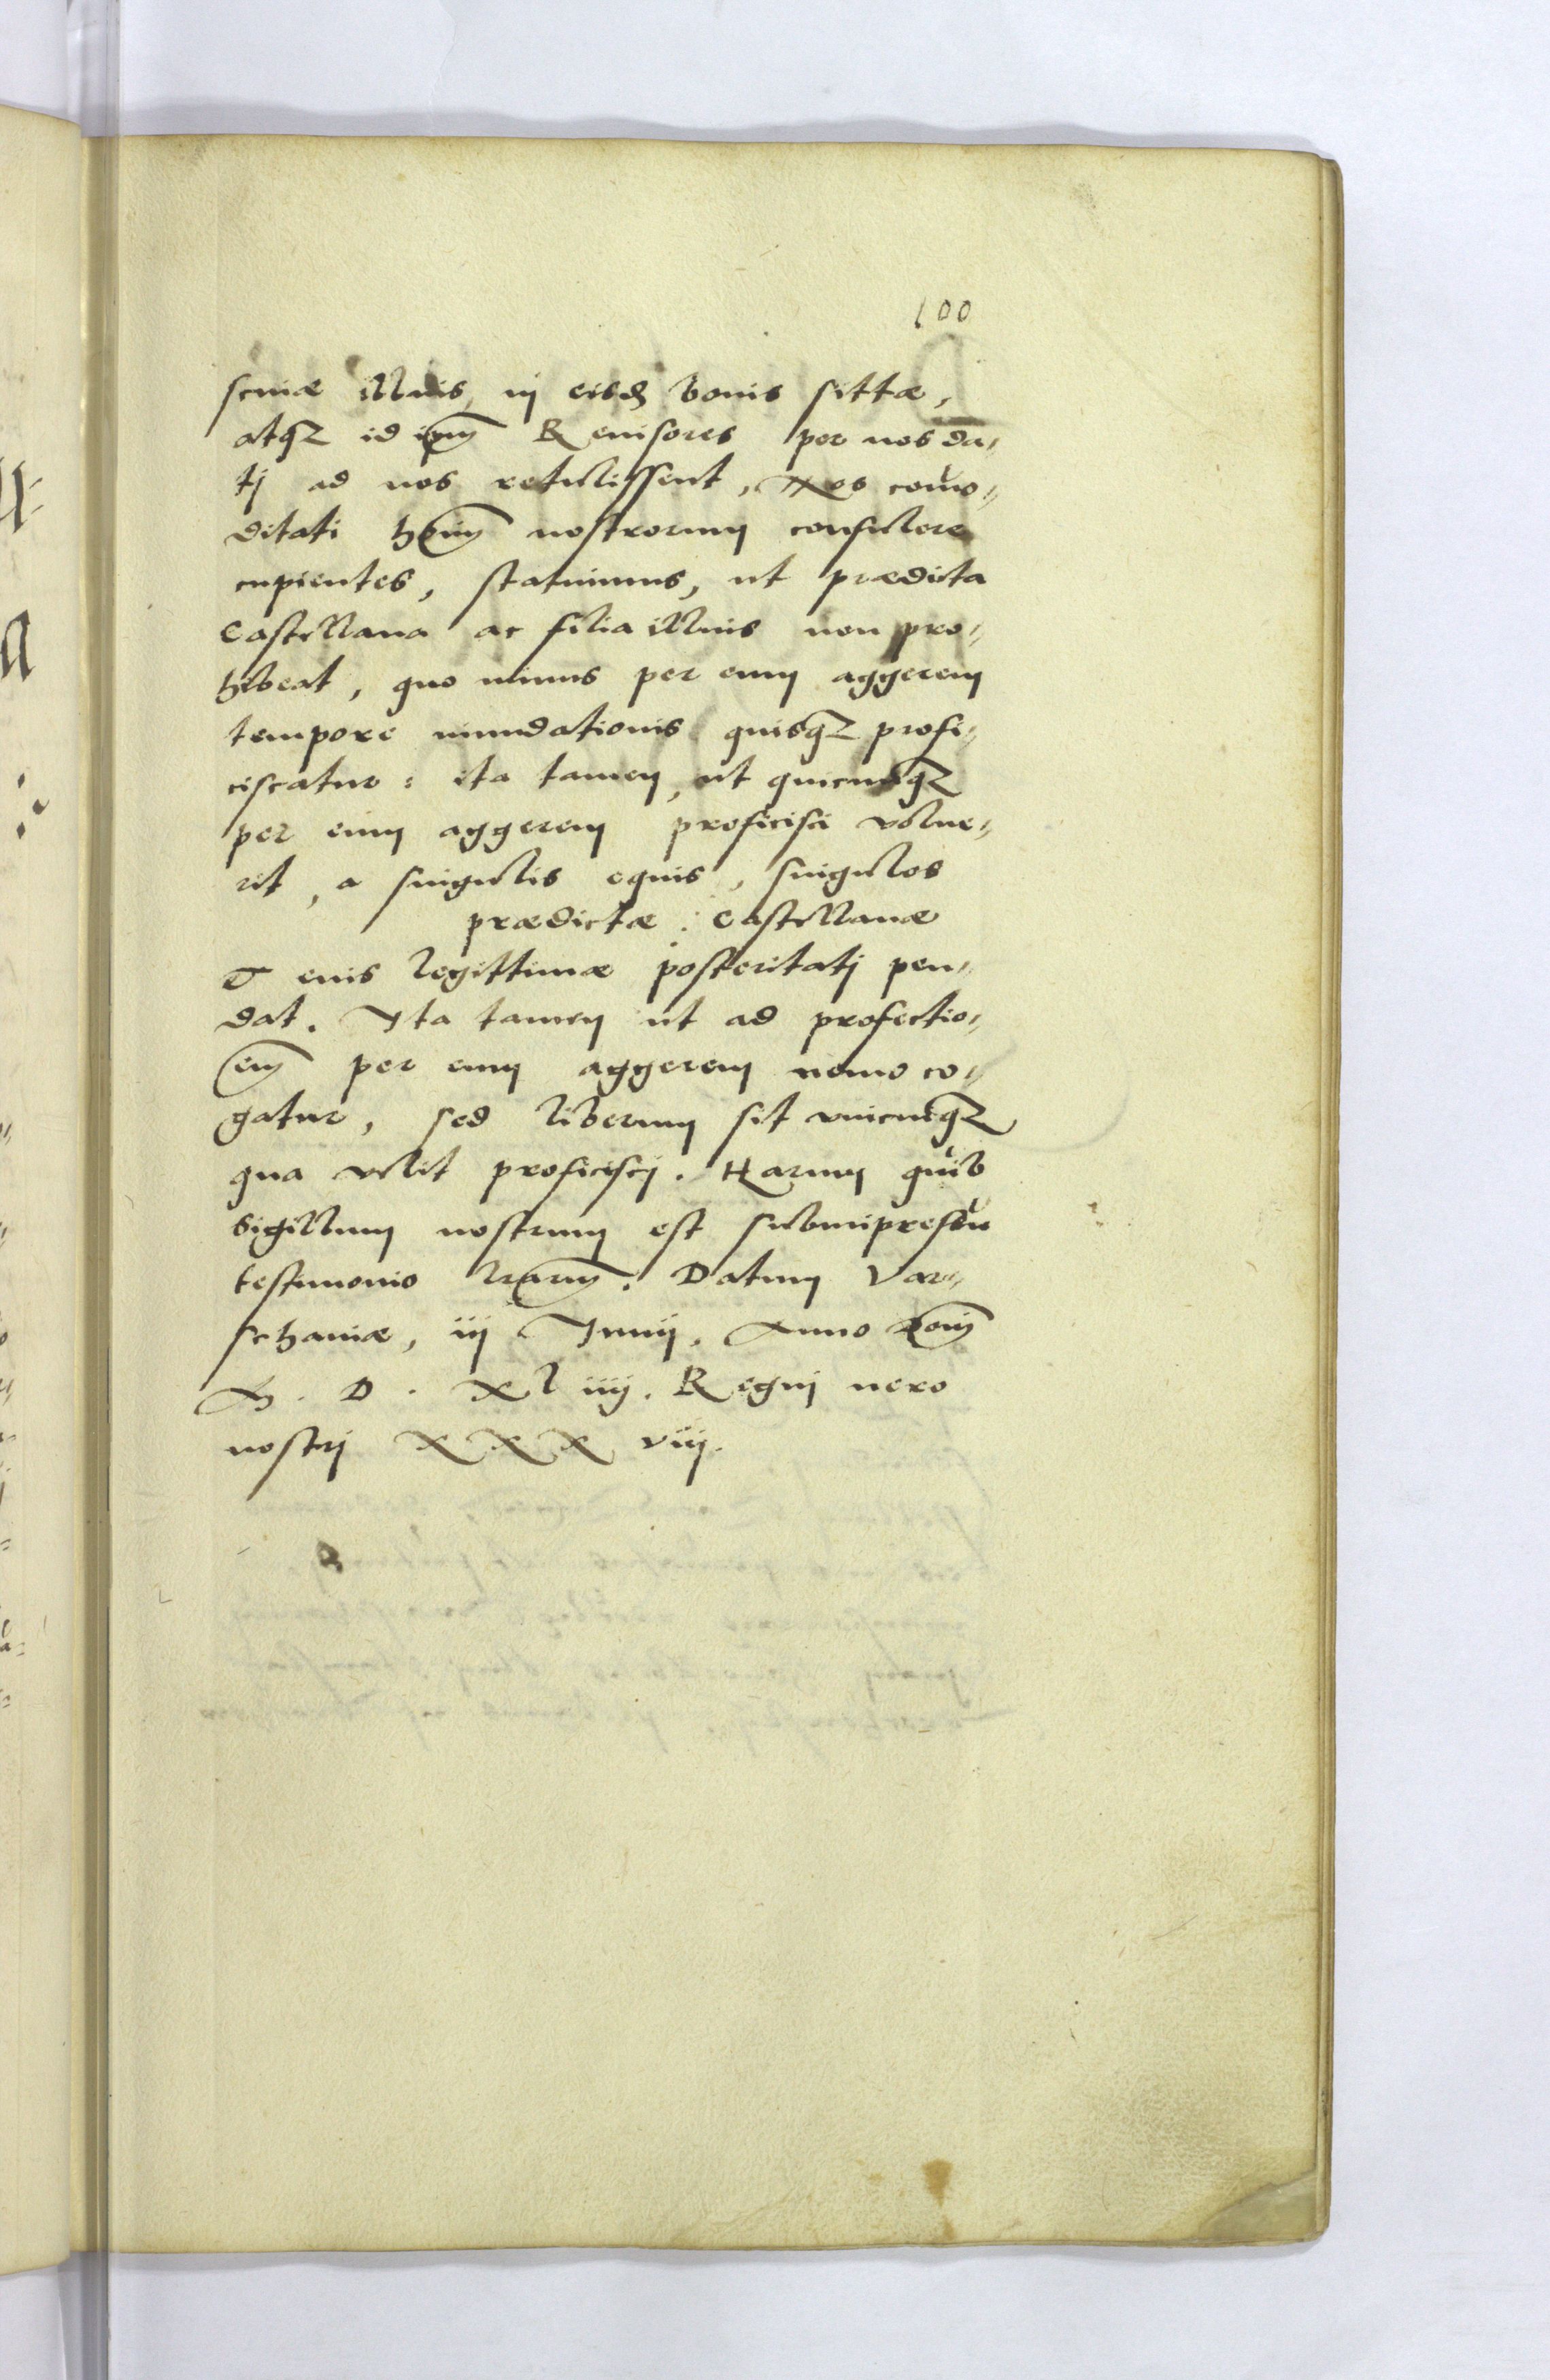 100
scinæ illius in eisd bonis sittæ,
atqz id ipm Reuisores per nos da-
tj ad nos retulissent, Nos como-
ditati hoim nostrorum consulere
cupientes, statuimus, ut prædicta
Castellana ac filia illius non pro-
hibeat, quo minus per eum aggerem
tempore inundationis quisqz profi-
ciscatur: ita tamen, ut quicunqz
per eum aggerem proficisci volue-
rit, a singulis equis, singulos
prædictæ Castellanæ
& eius legittimæ posteritatj pen-
dat. Ita tamen ut ad profectio-
em per eum aggerem nemo co-
gatur, sed liberum sit vnicuiqz
qua velit proficiscj. Harum quib
Sigillum nostrum est subimpressu
testimonio lrarum. Datum Var-
schaviæ, iij Junij. Anno Dom
M. D. Xl iiij. Regnj uero
nostrj XXX viij.